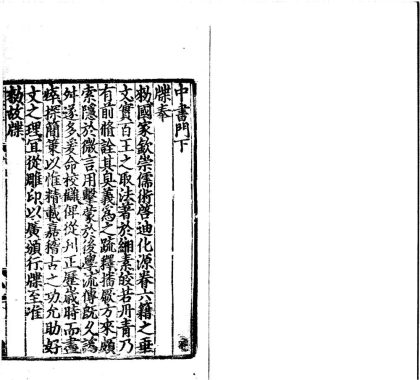 中書門下
牒奉
勑國家欽崇儒術啓迪化源眷六籍之垂
文實百王之取法著於緗素皎若丹青乃
有前脩詮其奥義爲之疏釋播厥方來頗
索隱於微言用擊蒙於後學流傳既久譌
舛遂多爰命校讎俾從刋正歷歲時而盡
瘁探簡策以惟精載嘉稽古之功允助好
文之理宜從雕印以廣頒行牒至准
勑故牒